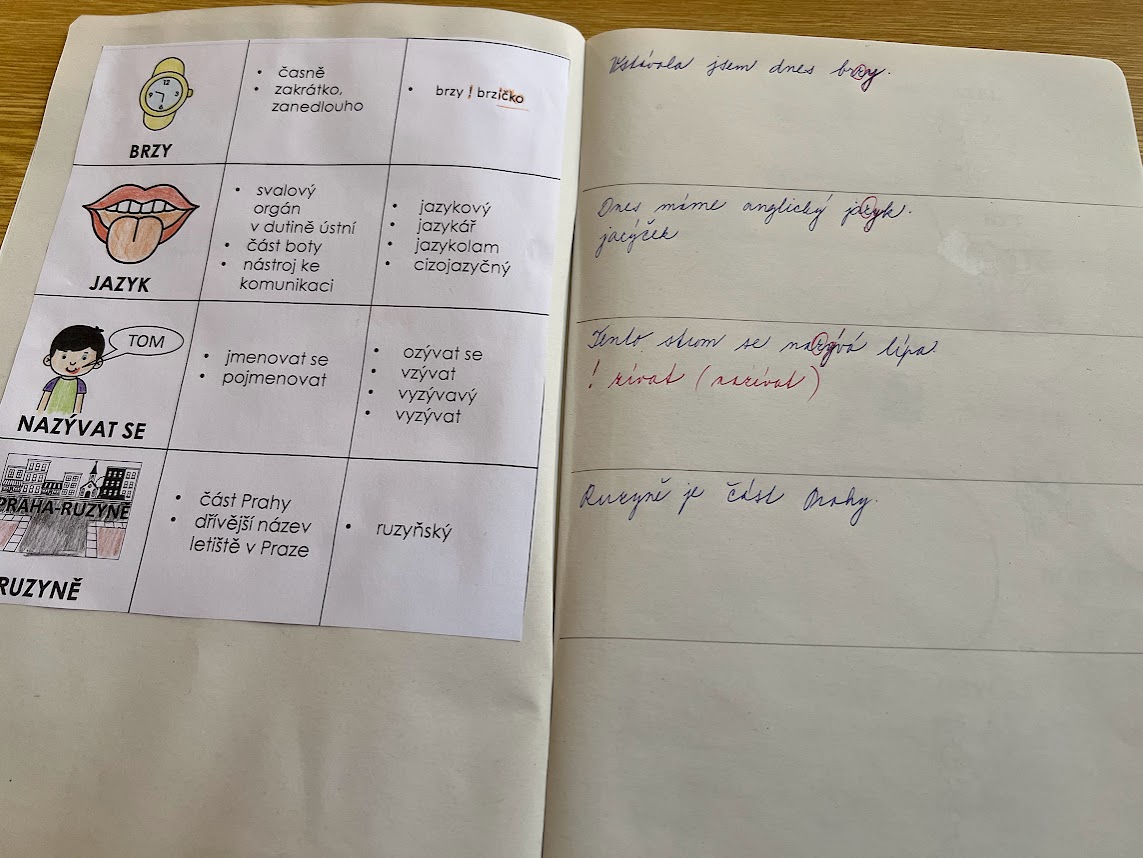 BRZY
• časně
• zakrátko,
zanedlouho
• brzy ! brzičko
Vstávala jsem dnes brzy.
JAZYK
• svalový
orgán
v dutině ústní
• část boty
• nástroj ke
komunikaci
• jazykový
• jazykář
• jazykolam
• cizojazyčný
Dnes máme anglický jazyk.
jazýček
TOM
NAZÝVAT SE
• jmenovat se
• pojmenovat
• ozývat se
• vzývat
• vyzývavý
• vyzývat
Tento strom se nazývá lípa.
! zívat (nazívat)
PRAHA-RUZYNĚ
RUZYNĚ
• část Prahy
• dřívější název
letiště v Praze
• ruzyňský
Ruzyně je část Prahy.